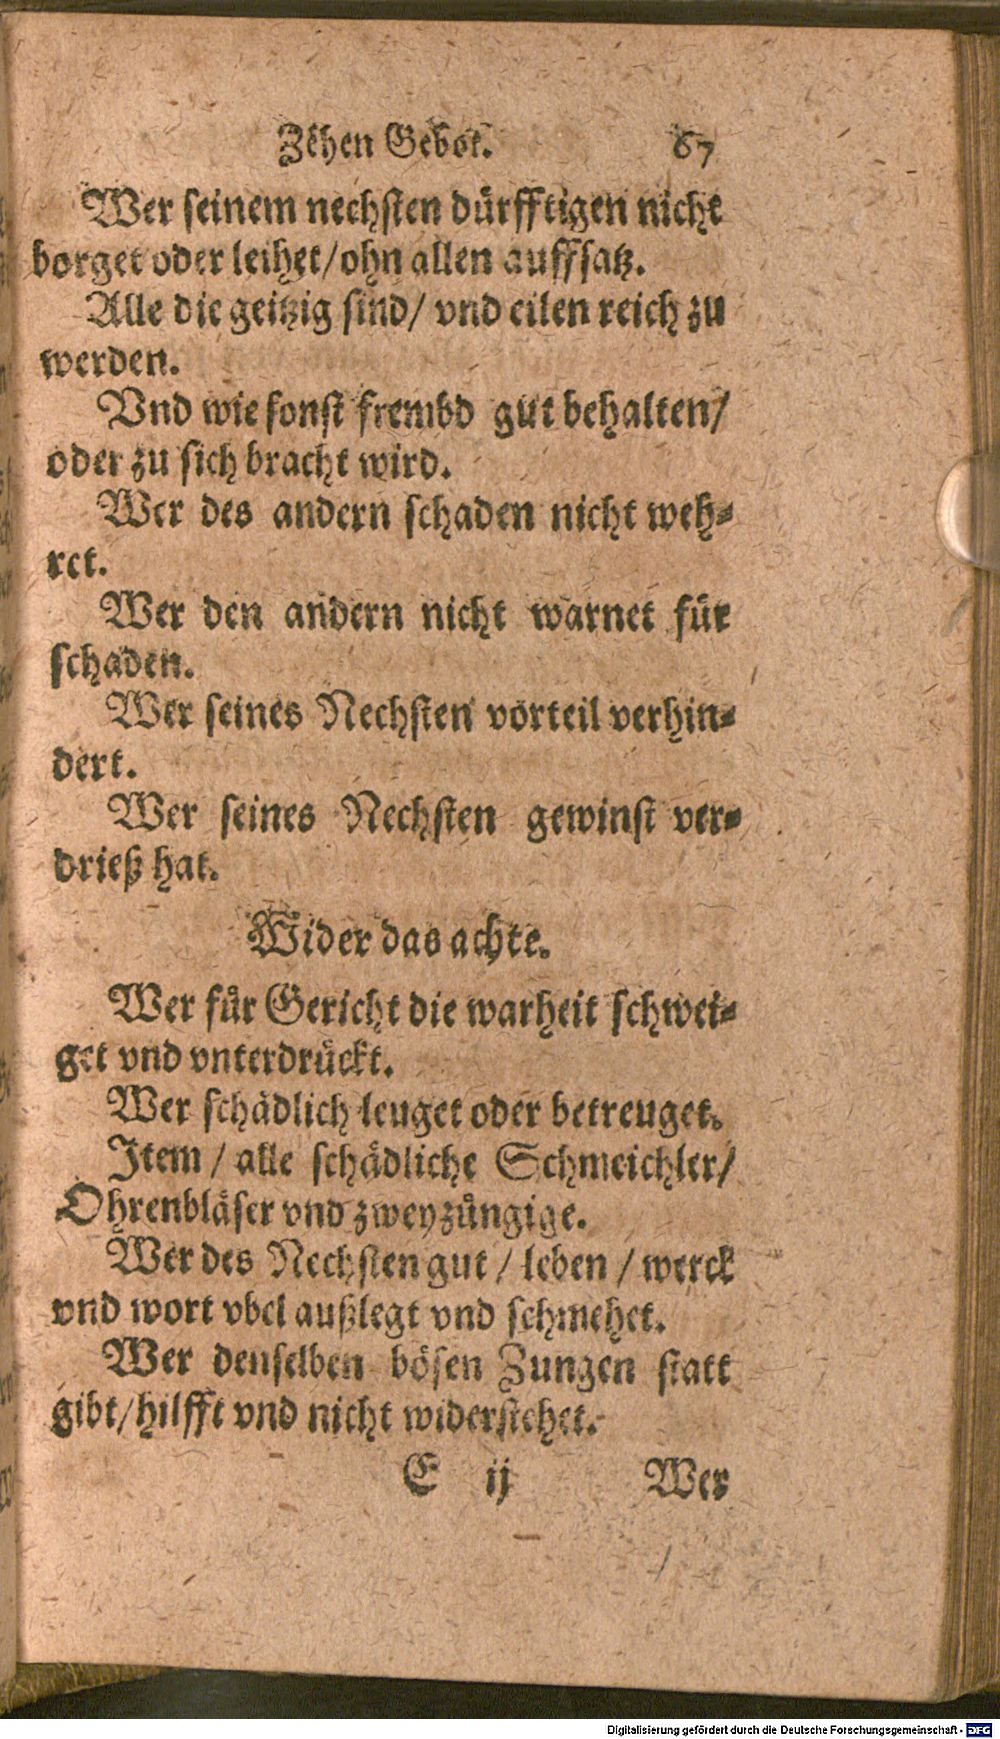 Zehen Gebot. 67
Wer seinem nechsten dürfftigen nicht
borget oder leihet/ohn allen auffsatz.
Alle die geitzig sind/ vnd eilen reich zu
werden.
Vnd wie sonst frembd gut behalten/
oder zu sich bracht wird.
Wer des andern schaden nicht weh-
ret.
Wer den andern nicht warnet für
schaden.
Wer seines Nechsten vorteil verhin-
dert.
Wer seines Nechsten gewinst ver-
drieß hat.
Wider das achte.
Wer für Gericht die warheit schwei-
get vnd vnterdrückt.
Wer schädlich leuget oder betreuget.
Item / alle schädliche Schmeichler/
Ohrenbläser vnd zweyzüngige.
Wer des Nechsten gut / leben / werck
vnd wort vbel außlegt vnd schmehet.
Wer denselben bösen Zungen statt
gibt/hilfft vnd nicht widerstehet.
E ij Wer
Digitalisierung gefördert durch die Deutsche Forschungsgemeinschaft - DFG